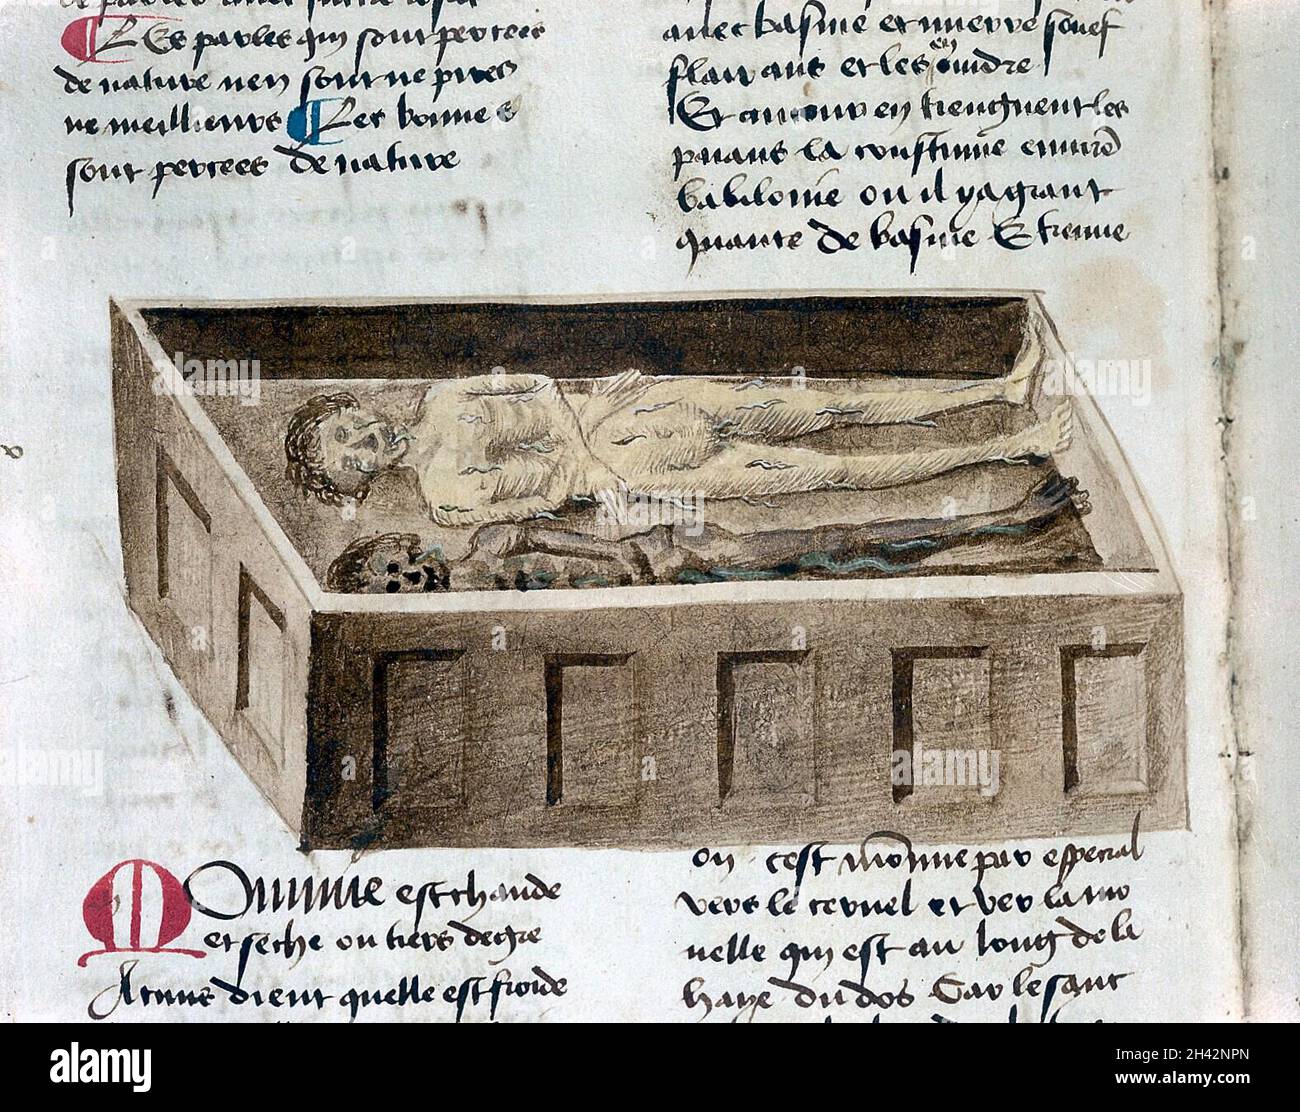 Les parles qui sont percees
de nature nen sont ne pires
ne meilleures Les bonnes
sont percees de nature
auec basme et mierre souef
flairans et les en oindre
Et encour en tiengnent les
paians la coustume enuirõ
babiloine ou il ya grant
quante de basme Et tienne
Mommie est chaude
et seche ou tiers degre
Acuns dient quelle est froide
on cest mõmie par especial
vers le ceruel et ver la mo
uelle qui est au long de la
haye du dos Car le sant
alamy
alamy
Image ID: 2H42NPN
www.alamy.com